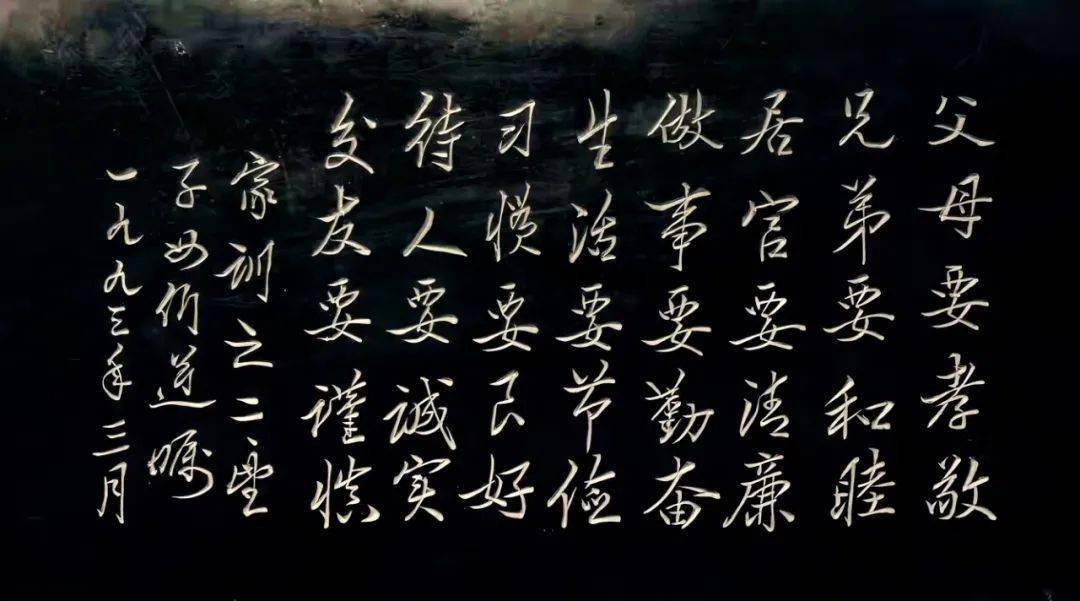 父母要孝敬
兄弟要和睦
居官要清廉
做事要勤奋
生活要节俭
习惯要良好
待人要诚实
交友要谨慎
家训之二望
子女们遵嘱
一九九三年三月